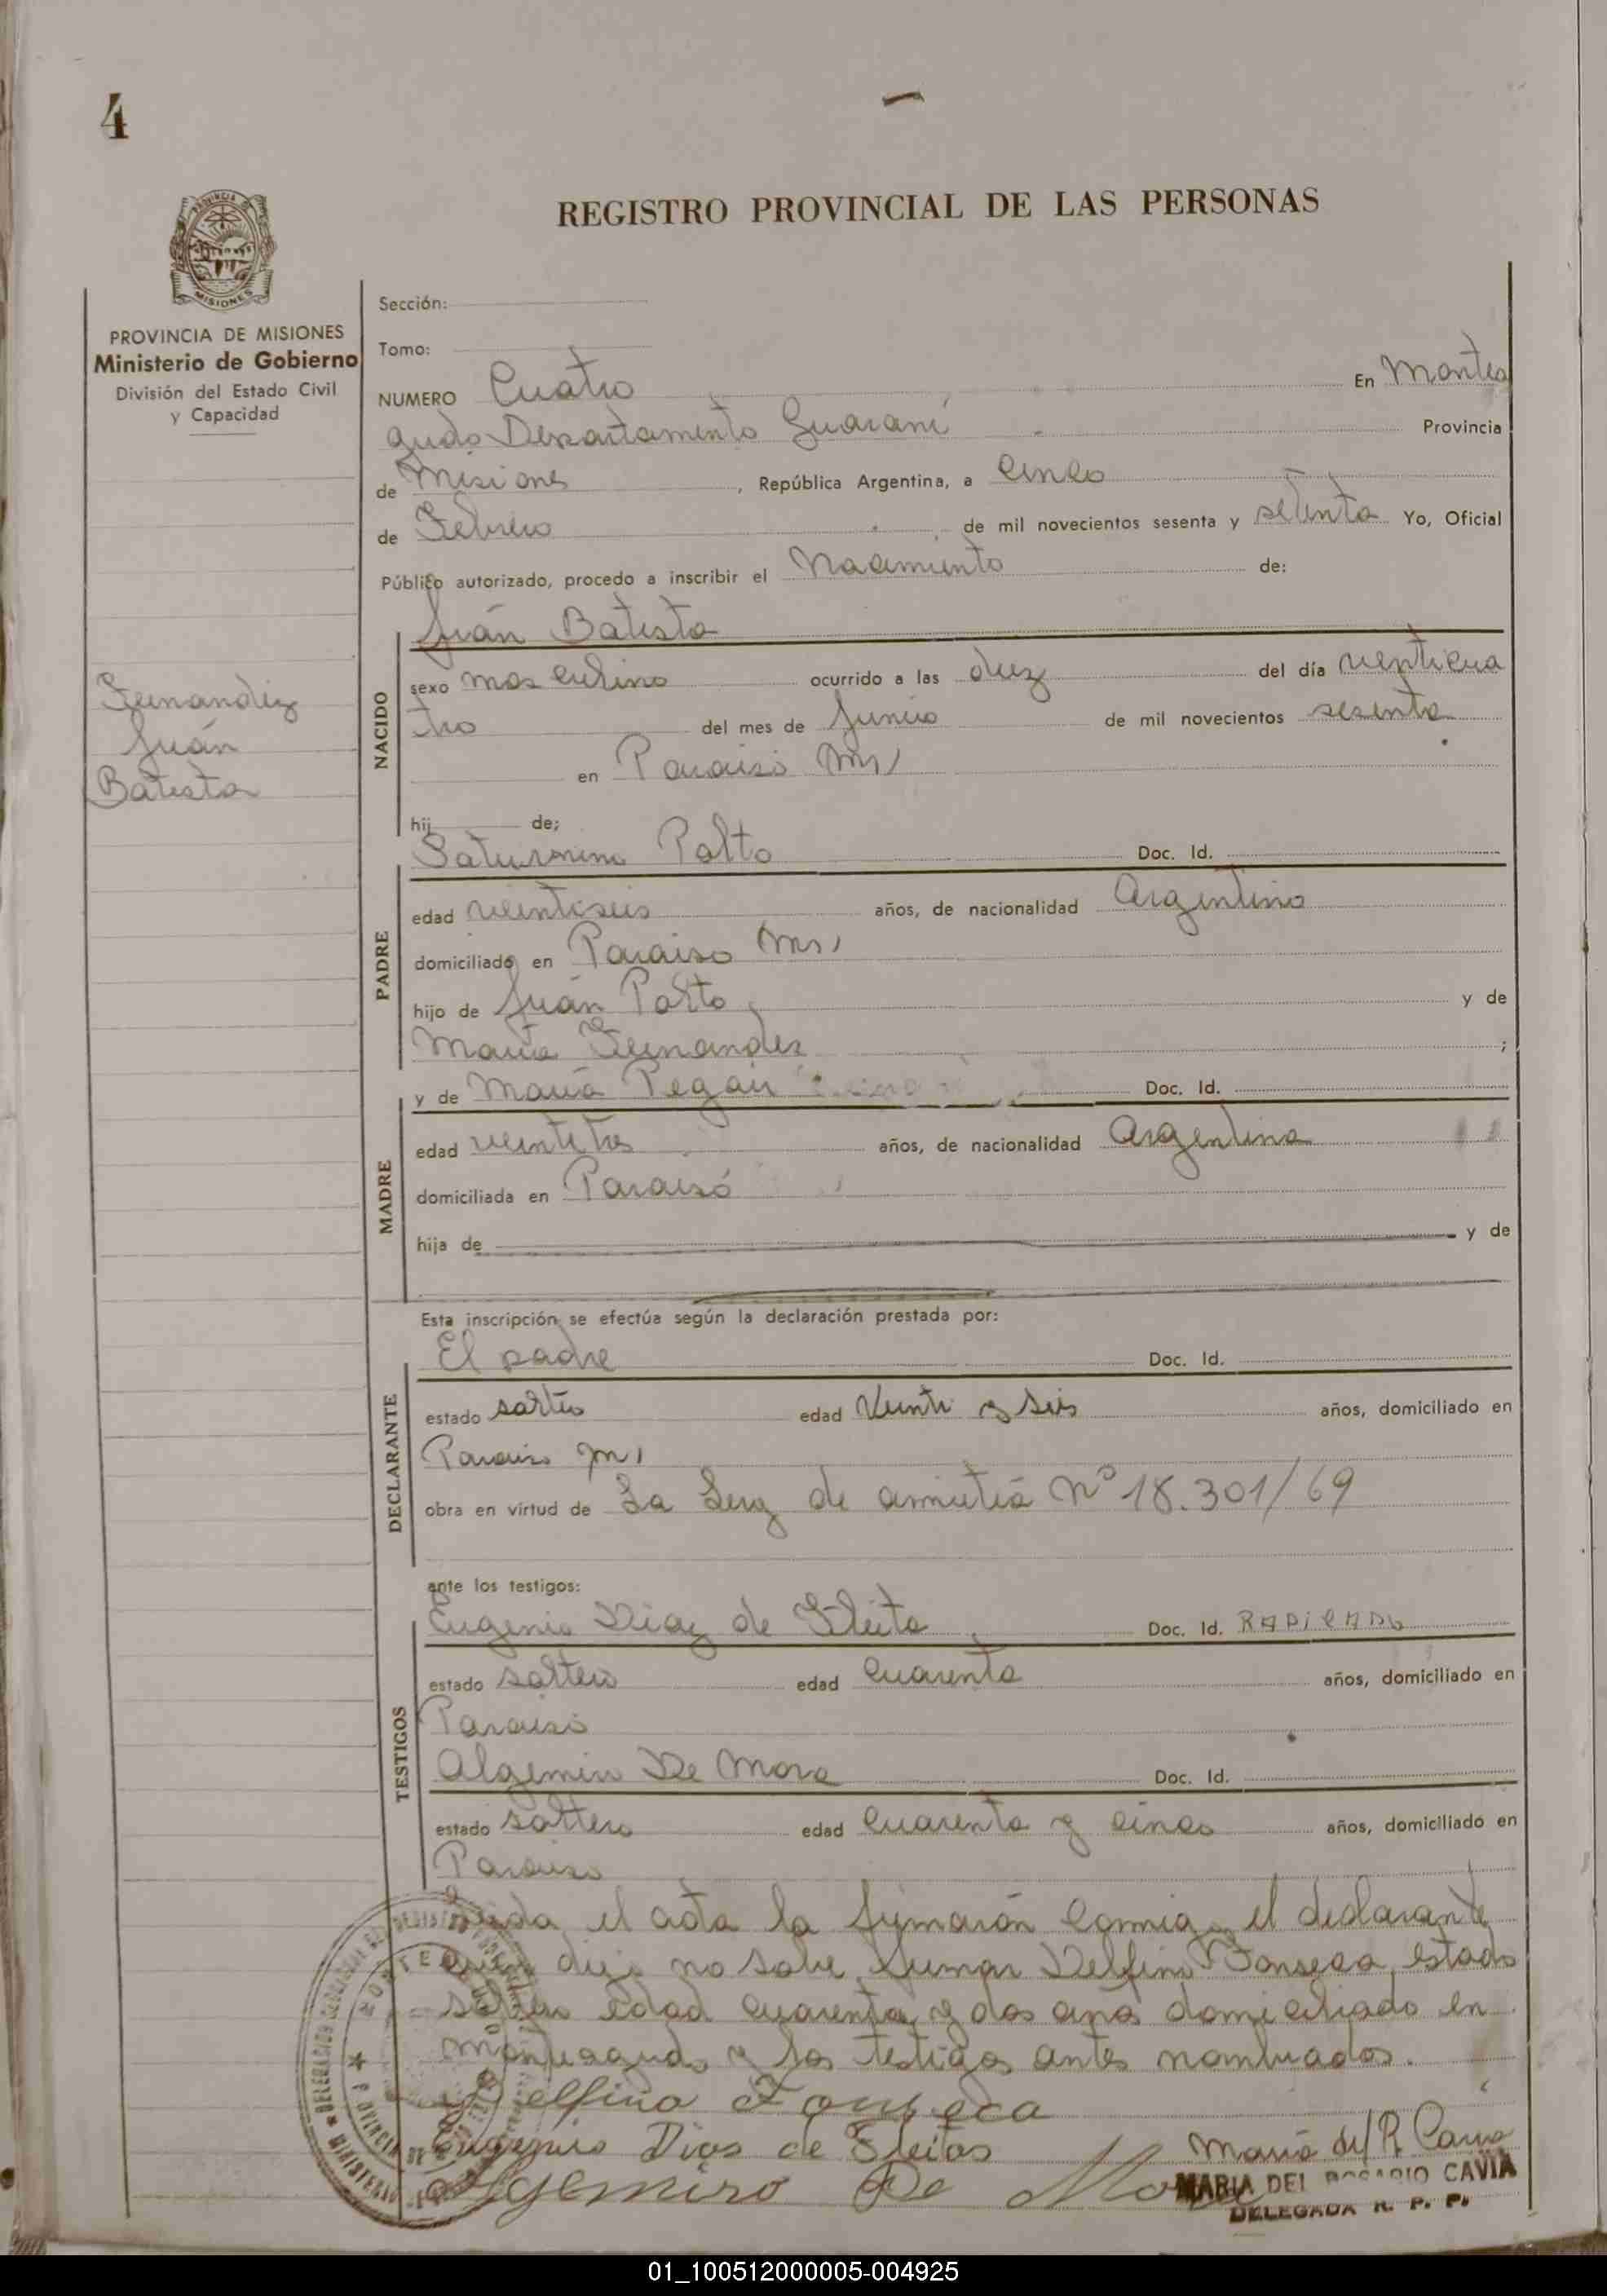 4
REGISTRO PROVINCIAL DE LAS PERSONAS
PROVINCIA DE MISIONES
Ministerio de Gobierno
División del Estado Civil
y Capacidad
Sección:
Tomo:
NUMERO Cuatro En Montea
gudo Departamento Guaraní Provincia
de Misiones, República Argentina, a Cinco
de Febrero de mil novecientos sesenta y setenta Yo, Oficial
Público autorizado, procedo a inscribir el Nacimiento de:
Juán Batista
Fernandez
Juán
Batista
NACIDO
sexo masculino ocurrido a las diez del día venticua
tro del mes de Junio de mil novecientos sesenta
en Paraiso Mns,
hij de;
Saturnino Palto Doc. Id.
PADRE
edad veintiseis años, de nacionalidad Argentino
domiciliado en Paraiso Mns,
hijo de Juán Palto y de
Maria Fernandez ;
y de María Pegair Doc. Id.
MADRE
edad veintitres años, de nacionalidad Argentina
domiciliada en Paraisó
hija de y de
Esta inscripción se efectúa según la declaración prestada por:
El padre Doc. Id.
DECLARANTE
estado soltero edad Veinti y Seis años, domiciliado en
Paraiso M,
obra en virtud de La Ley de amnistía Nº 18.301/69
ante los testigos:
Eugenio Diaz de Fleita Doc. Id. RADICADO
TESTIGOS
estado soltero edad cuarenta años, domiciliado en
Paraiso
Algemiro De Mora Doc. Id.
estado soltero edad cuarenta y cinco años, domiciliado en
Paraiso
el acta la firmarón conmigo el declarante
quien dijo no sabe firmar Delfino Fonseca, estado
soltero edad cuarenta y dos años domiciliado en
Monteagudo y los testigos antes nombrados.
Delfino Fonseca
Eugenio Dias de Fleitas
Algemiro De Mora
María del R. Cavia
MARIA DEL ROSARIO CAVIA
DELEGADA R. P. P.
01_100512000005-004925